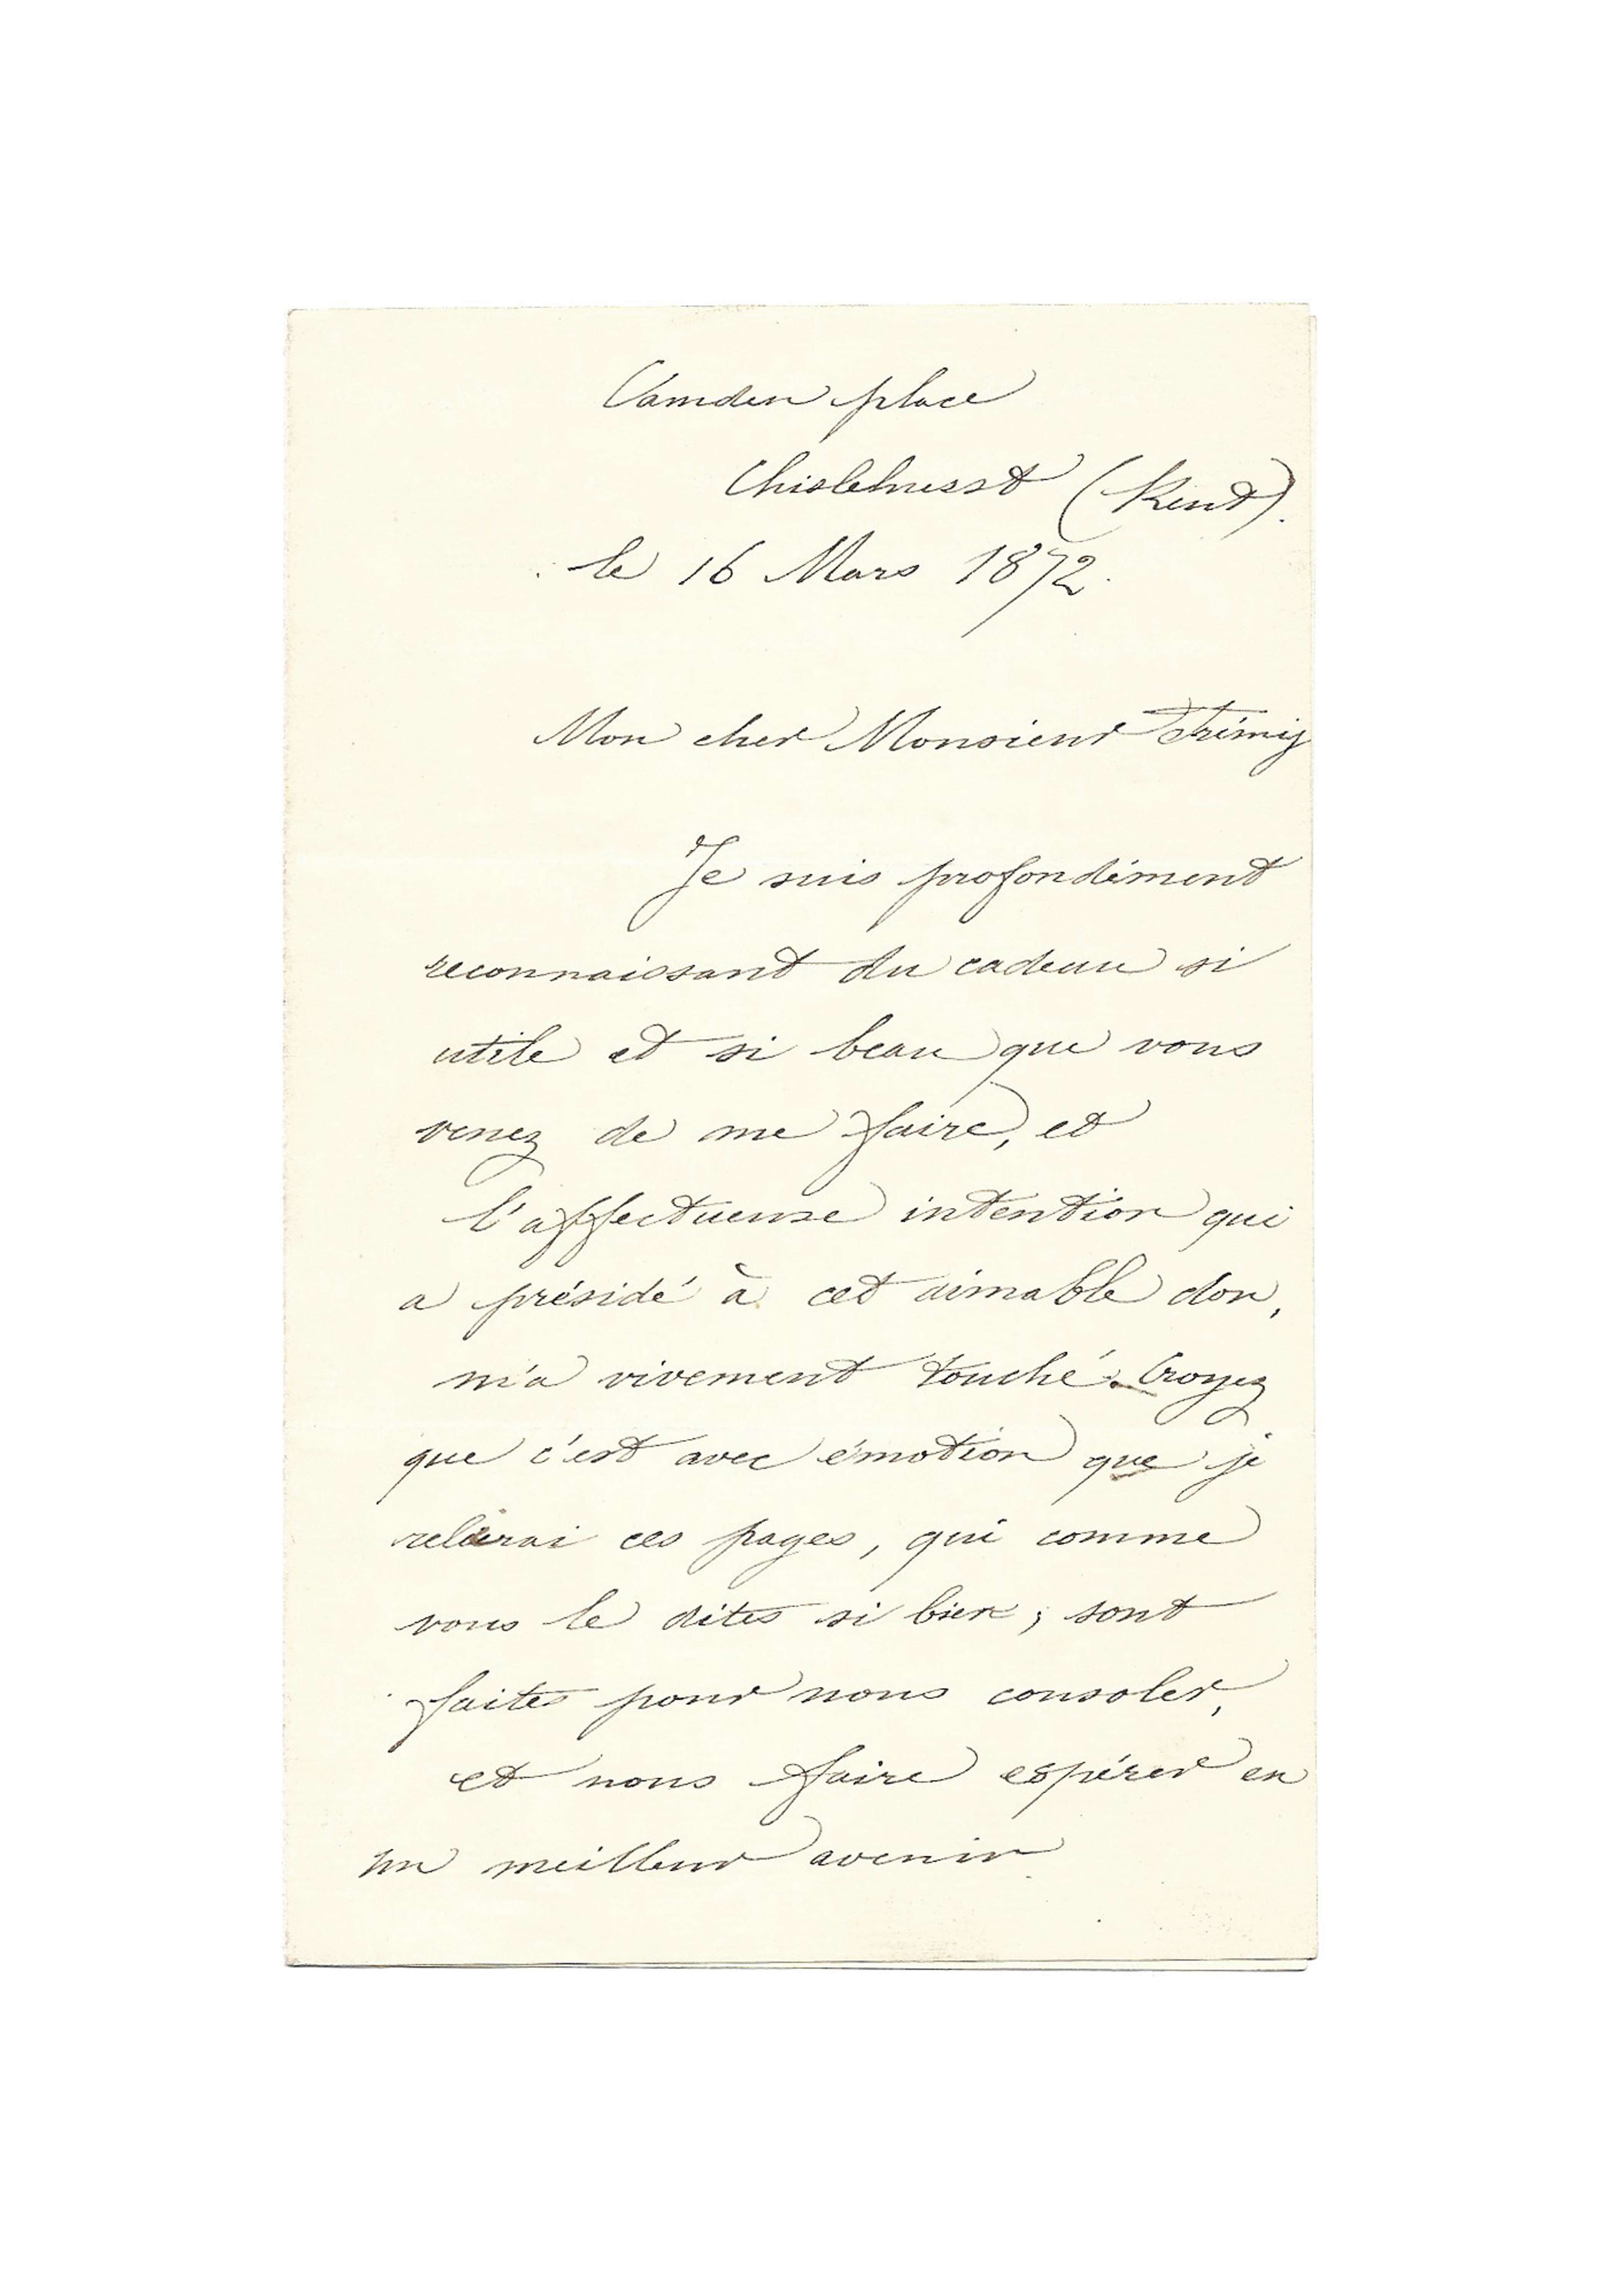 Camden place
Chislehurst (Kent).
le 16 Mars 1872.
Mon cher Monsieur Frémy
Je suis profondément
reconnaissant du cadeau si
utile et si beau que vous
venez de me faire, et
l'affectueuse intention qui
a présidé à cet aimable don,
m'a vivement touché. Croyez
que c'est avec émotion que je
relirai ces pages, qui comme
vous le dites si bien, sont
faites pour nous consoler,
et nous faire espérer en
un meilleur avenir.